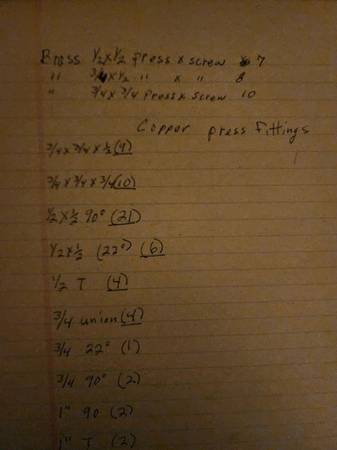 Brass 1/2x1/2 press x screw x 7
" 3/4x1/2 " x " 8
" 3/4 x 3/4 Press x Screw 10
Copper press fittings
3/4 x 3/4 x 1/2 (9)
3/4 x 3/4 x 3/4 (10)
1/2 x 1/2 90° (21)
1/2 x 1/2 (22°) (6)
1/2 T (4)
3/4 union (4)
3/4 22° (1)
3/4 90° (2)
1" 90 (2)
1" T (2)